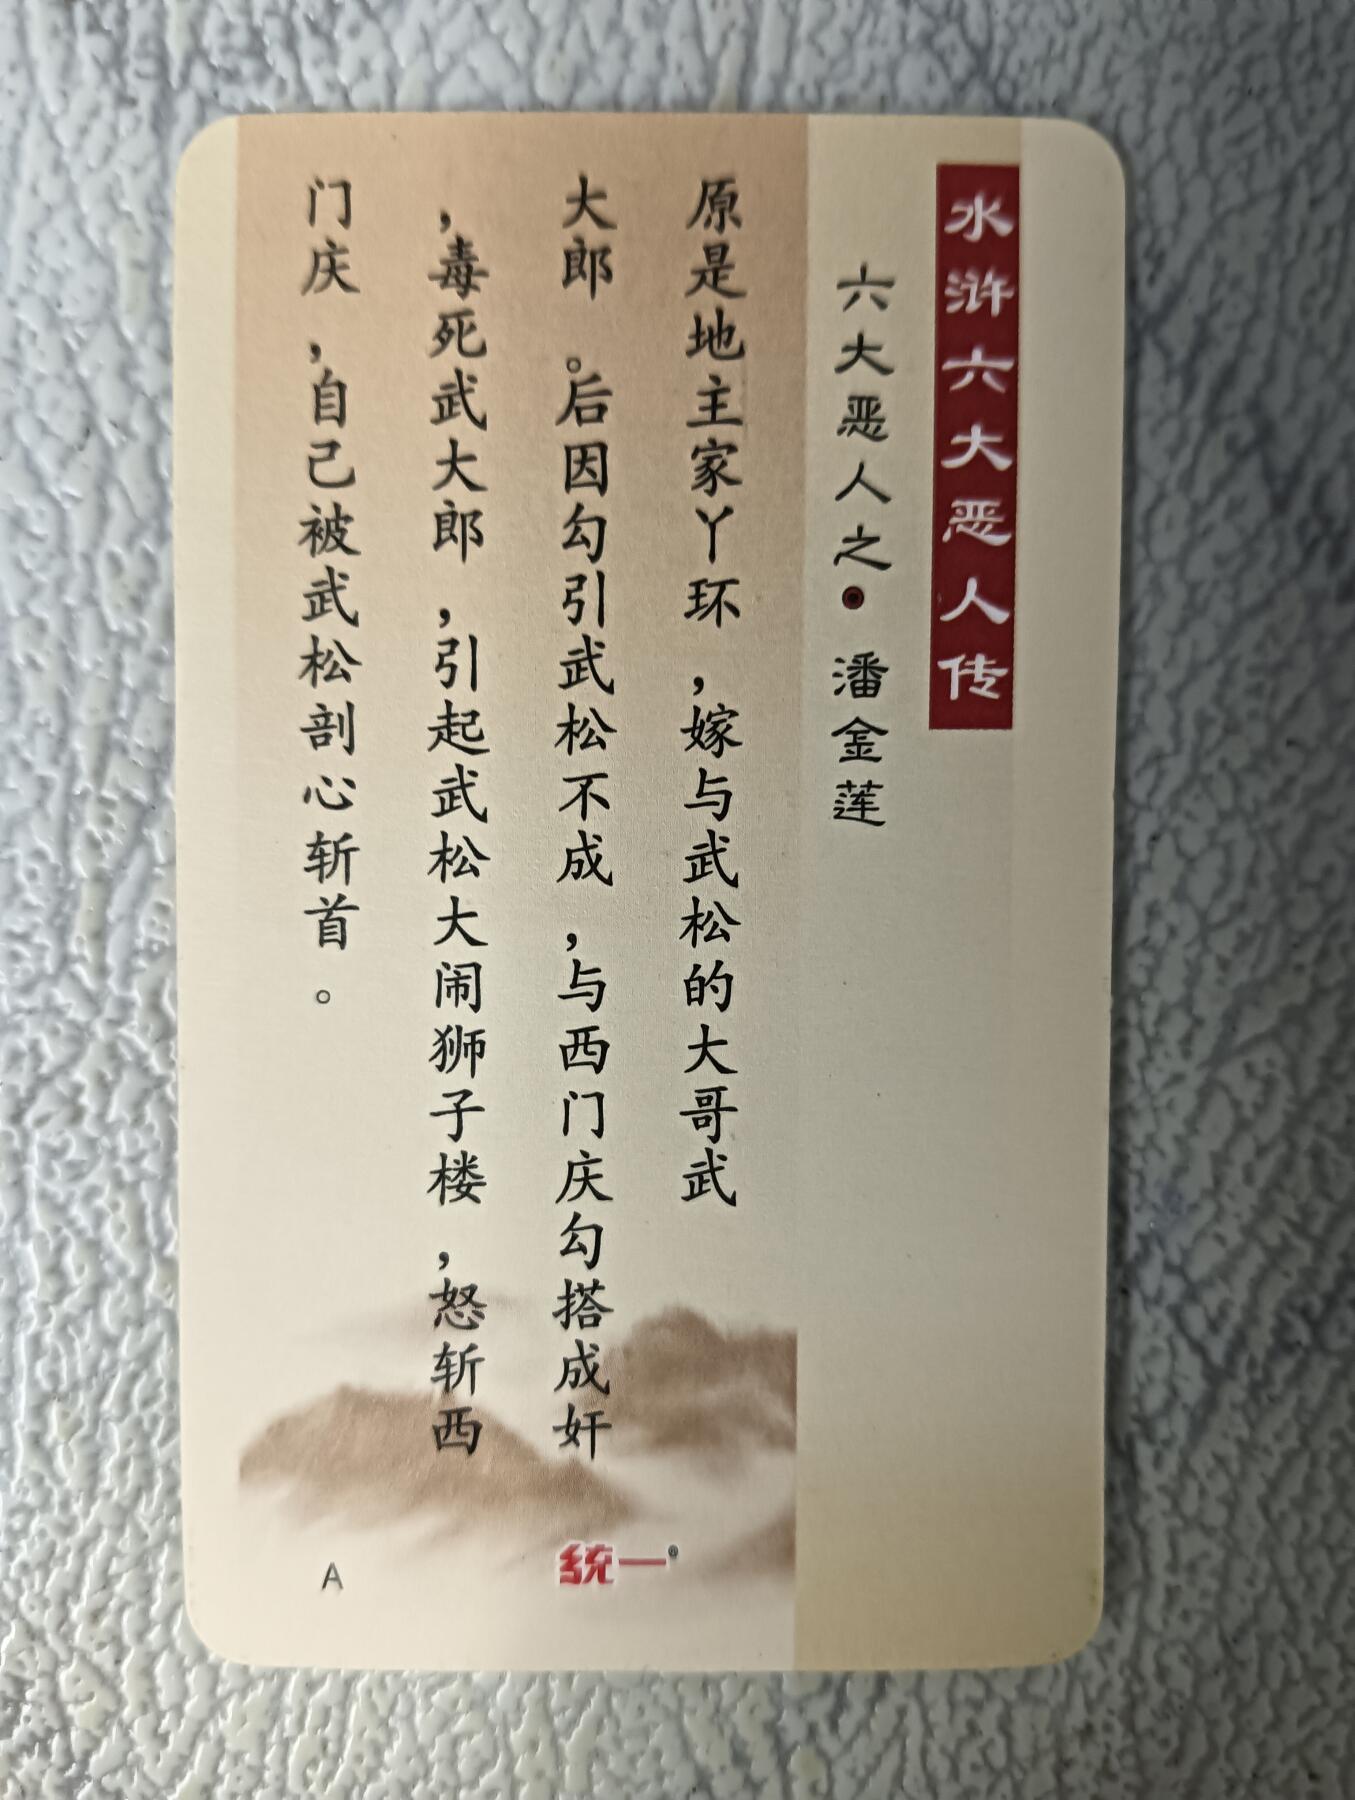 水浒六大恶人传
六大恶人之·潘金莲
原是地主家丫环，嫁与武松的大哥武
大郎。后因勾引武松不成，与西门庆勾搭成奸
，毒死武大郎，引起武松大闹狮子楼，怒斩西
门庆，自己被武松剖心斩首。
统一®
A